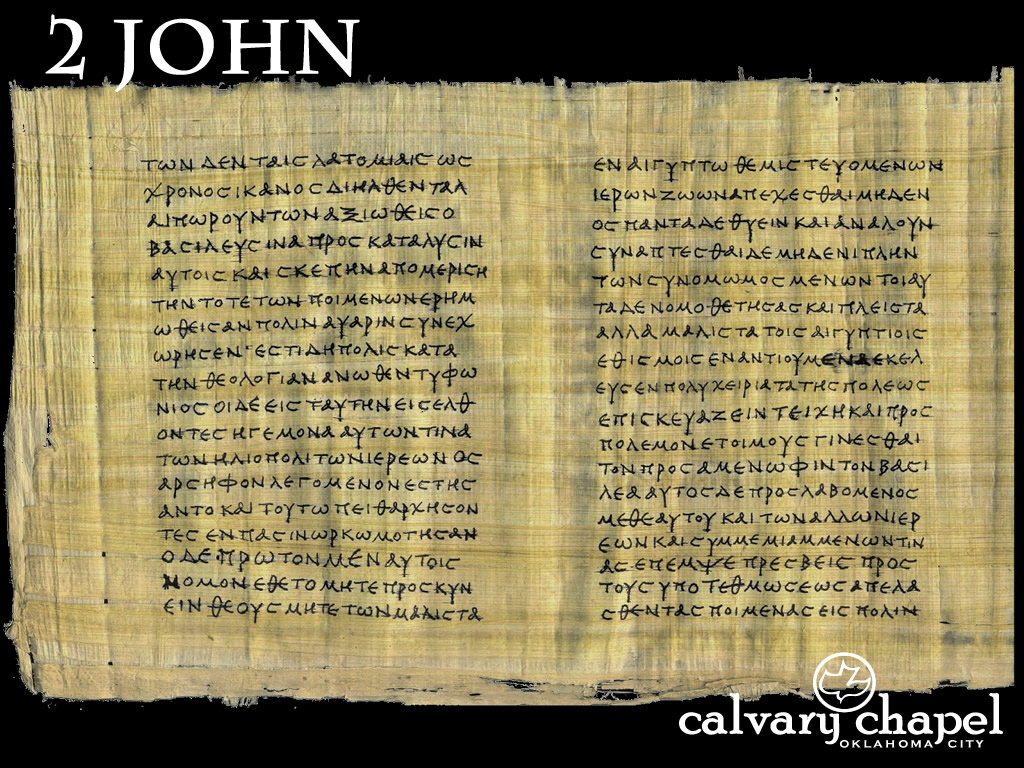 2 JOHN
ΤωΝ ΔΕΝ ΤΑΙϹ ΛΑΤΟΜΙΑΙϹ ωϹ
ΧΡΟΝΟϹ ΙΚΑΝΟϹ ΔΙΗΛΘΕΝ ΤΑΛ
ΑΙΠωΡΟΥΝΤωΝ ΑΞΙωΘΕΙϹ Ο
ΒΑϹΙΛΕΥϹ ΙΝΑ ΠΡΟϹ ΚΑΤΑΛΥϹΙΝ
ΑΥΤΟΙϹ ΚΑΙ ϹΚΕΠΗΝ ΑΠΟΜΕΡΙϹΗ
ΤΗΝ ΤΟΤΕ ΤωΝ ΠΟΙΜΕΝωΝ ΕΡΗΜ
ωΘΕΙϹΑΝ ΠΟΛΙΝ ΑΥΑΡΙΝ ϹΥΝΕΧ
ωΡΗϹΕΝ· ΕϹΤΙ ΔΗ ΠΟΛΙϹ ΚΑΤΑ
ΤΗΝ ΘΕΟΛΟΓΙΑΝ ΑΝωΘΕΝ ΤΥΦω
ΝΙΟϹ ΟΙ ΔΕ ΕΙϹ ΤΑΥΤΗΝ ΕΙϹΕΛΘ
ΟΝΤΕϹ ΗΓΕΜΟΝΑ ΑΥΤωΝ ΤΙΝΑ
ΤωΝ ΗΛΙΟΠΟΛΙΤωΝ ΙΕΡΕωΝ ΟϹ
ΑΡϹΗΦΟΝ ΛΕΓΟΜΕΝΟΝ ΕϹΤΗϹ
ΑΝΤΟ ΚΑΙ ΤΟΥΤω ΠΕΙΘΑΡΧΗϹΟΝ
ΤΕϹ ΕΝ ΠΑϹΙΝ ωΡΚωΜΟΤΗϹΑΝ
Ο ΔΕ ΠΡωΤΟΝ ΜΕΝ ΑΥΤΟΙϹ
ΝΟΜΟΝ ΕΘΕΤΟ ΜΗΤΕ ΠΡΟϹΚΥΝ
ΕΙΝ ΘΕΟΥϹ ΜΗΤΕ ΤωΝ ΜΑΛΙϹΤΑ
ΕΝ ΑΙΓΥΠΤω ΘΕΜΙϹΤΕΥΟΜΕΝωΝ
ΙΕΡωΝ ΖωωΝ ΑΠΕΧΕϹΘΑΙ ΜΗΔΕΝ
ΟϹ ΠΑΝΤΑ ΔΕ ΘΥΕΙΝ ΚΑΙ ΑΝΑΛΟΥΝ
ϹΥΝΑΠΤΕϹΘΑΙ ΔΕ ΜΗΔΕΝΙ ΠΛΗΝ
ΤωΝ ϹΥΝΟΜωΜΟϹΜΕΝωΝ ΤΟΙΑΥ
ΤΑ ΔΕ ΝΟΜΟΘΕΤΗϹΑϹ ΚΑΙ ΠΛΕΙϹΤΑ
ΑΛΛΑ ΜΑΛΙϹΤΑ ΤΟΙϹ ΑΙΓΥΠΤΙΟΙϹ
ΕΘΙϹΜΟΙϹ ΕΝΑΝΤΙΟΥΜΕΝΑ ΕΚΕΛ
ΕΥϹΕΝ ΠΟΛΥΧΕΙΡΙΑ ΤΑ ΤΗϹ ΠΟΛΕωϹ
ΕΠΙϹΚΕΥΑΖΕΙΝ ΤΕΙΧΗ ΚΑΙ ΠΡΟϹ
ΠΟΛΕΜΟΝ ΕΤΟΙΜΟΥϹ ΓΙΝΕϹΘΑΙ
ΤΟΝ ΠΡΟϹ ΑΜΕΝωΦΙΝ ΤΟΝ ΒΑϹΙ
ΛΕΑ ΑΥΤΟϹ ΔΕ ΠΡΟϹΛΑΒΟΜΕΝΟϹ
ΜΕΘΕΑΥΤΟΥ ΚΑΙ ΤωΝ ΑΛΛωΝ ΙΕΡ
ΕωΝ ΚΑΙ ϹΥΜΜΕΜΙΑΜΜΕΝωΝ ΤΙΝ
ΑϹ ΕΠΕΜΨΕ ΠΡΕϹΒΕΙϹ ΠΡΟϹ
ΤΟΥϹ ΥΠΟ ΤΕΘΜωϹΕωϹ ΑΠΕΛΑ
ϹΘΕΝΤΑϹ ΠΟΙΜΕΝΑϹ ΕΙϹ ΠΟΛΙΝ
calvary chapel
OKLAHOMA CITY